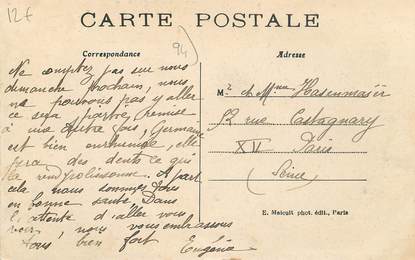 12€
CARTE POSTALE
94
Correspondance
Adresse
Ne comptez pas sur nous
dimanche prochain, nous
ne pouvons pas y aller
ce sera partie remise
à une autre fois, Germaine
est bien enrhumée, elle
fera des dents ce qui
la rend polissonne. A part
cela nous sommes tous
en bonne santé. Dans
l'attente d'aller vous
voir, nous vous embrassons
tous bien fort
Eugénie
Mr et Mme Hasenmaïer
52 rue Castagnary
XV Paris
(Seine)
E. Malcuit phot. édit., Paris